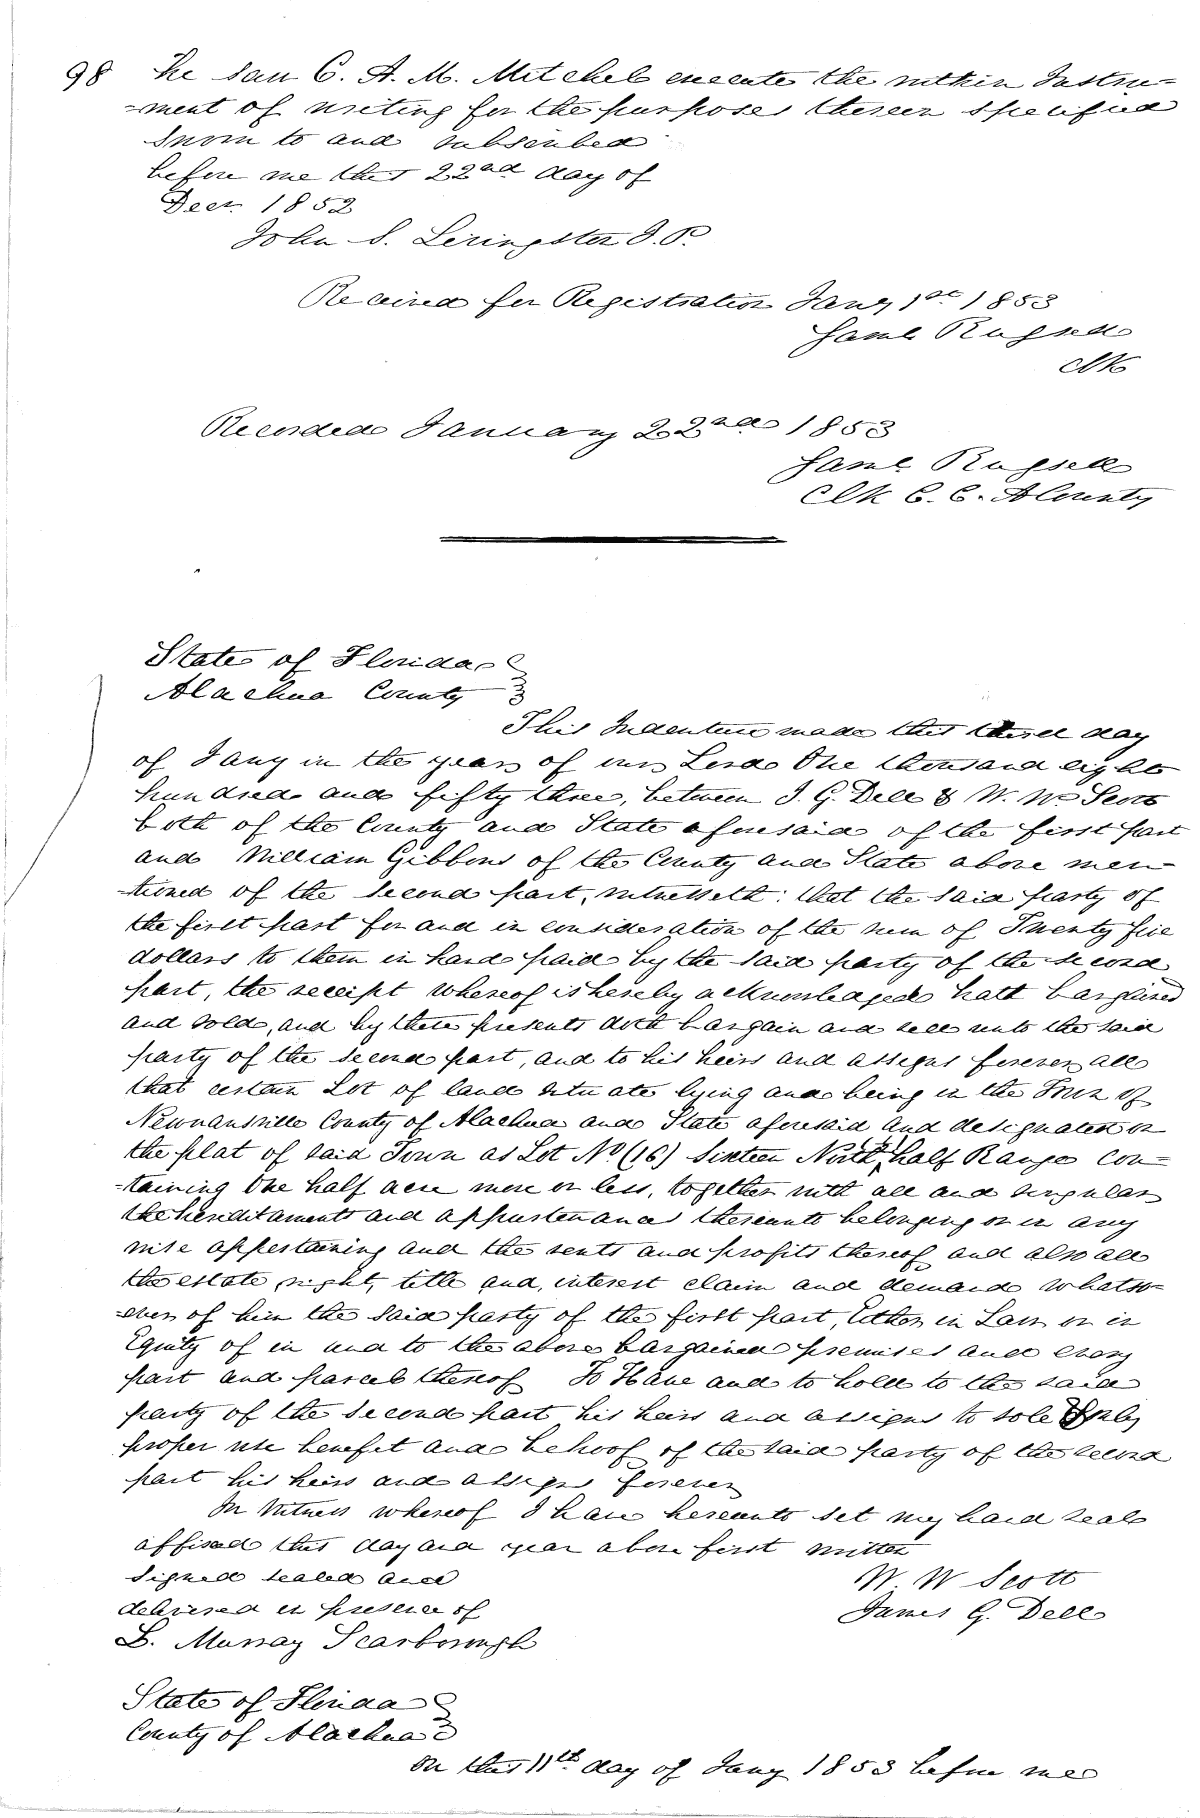 98 he saw C. A. M. Mitchel execute the within Instru-
-ment of writing for the purposes therein specified
Sworn to and subscribed
before me this 22nd day of
Decr. 1852
John S. Livingston J. P.
Received for Registration Jany 1st 1853
Saml Russell
Clk
Recorded January 22nd 1853
Saml Russell
Clk C. C. A County
State of Florida
Alachua County
This Indenture made this third day
of Jany in the year of our Lord One thousand eight
hundred and fifty three, between J. G. Dell & W. W. Scott
both of the County and State aforesaid of the first part
and William Gibbons of the County and State above men
-tioned of the second part, witnesseth: that the said party of
the first part for and in consideration of the sum of Twenty five
dollars to them in hand paid by the said party of the second
part, the receipt whereof is hereby acknowledged hath bargained
and sold, and by these presents doth bargain and sell unto the said
party of the second part, and to his heirs and assigns forever all
that certain Lot of land situate lying and being in the Town of
Newnansville County of Alachua and State aforesaid and designated on
the plat of said Town as Lot No (16) Sixteen North half Range con-
-taining One half acre more or less, together with all and singular
the hereditaments and appurtenances thereunto belonging or in any
wise appertaining and the rents and profits thereof and also all
the estate, right, title and, interest claim and demand whatso-
-ever of him the said party of the first part, Either in Law or in
Equity of in and to the above bargained premises and every
part and parcel thereof To Have and to hold to the said
party of the second part his heirs and assigns to sole Only
proper use benefit and behoof of the said party of the second
part his heirs and assigns forever
In Witness whereof I have hereunto set my hand seal
affixed this day and year above first written
Signed sealed and
delivered in presence of
W. W Scott
James G. Dell
L. Murray Scarborough
State of Florida
County of Alachua
On this 11th day of Jany 1853 before me